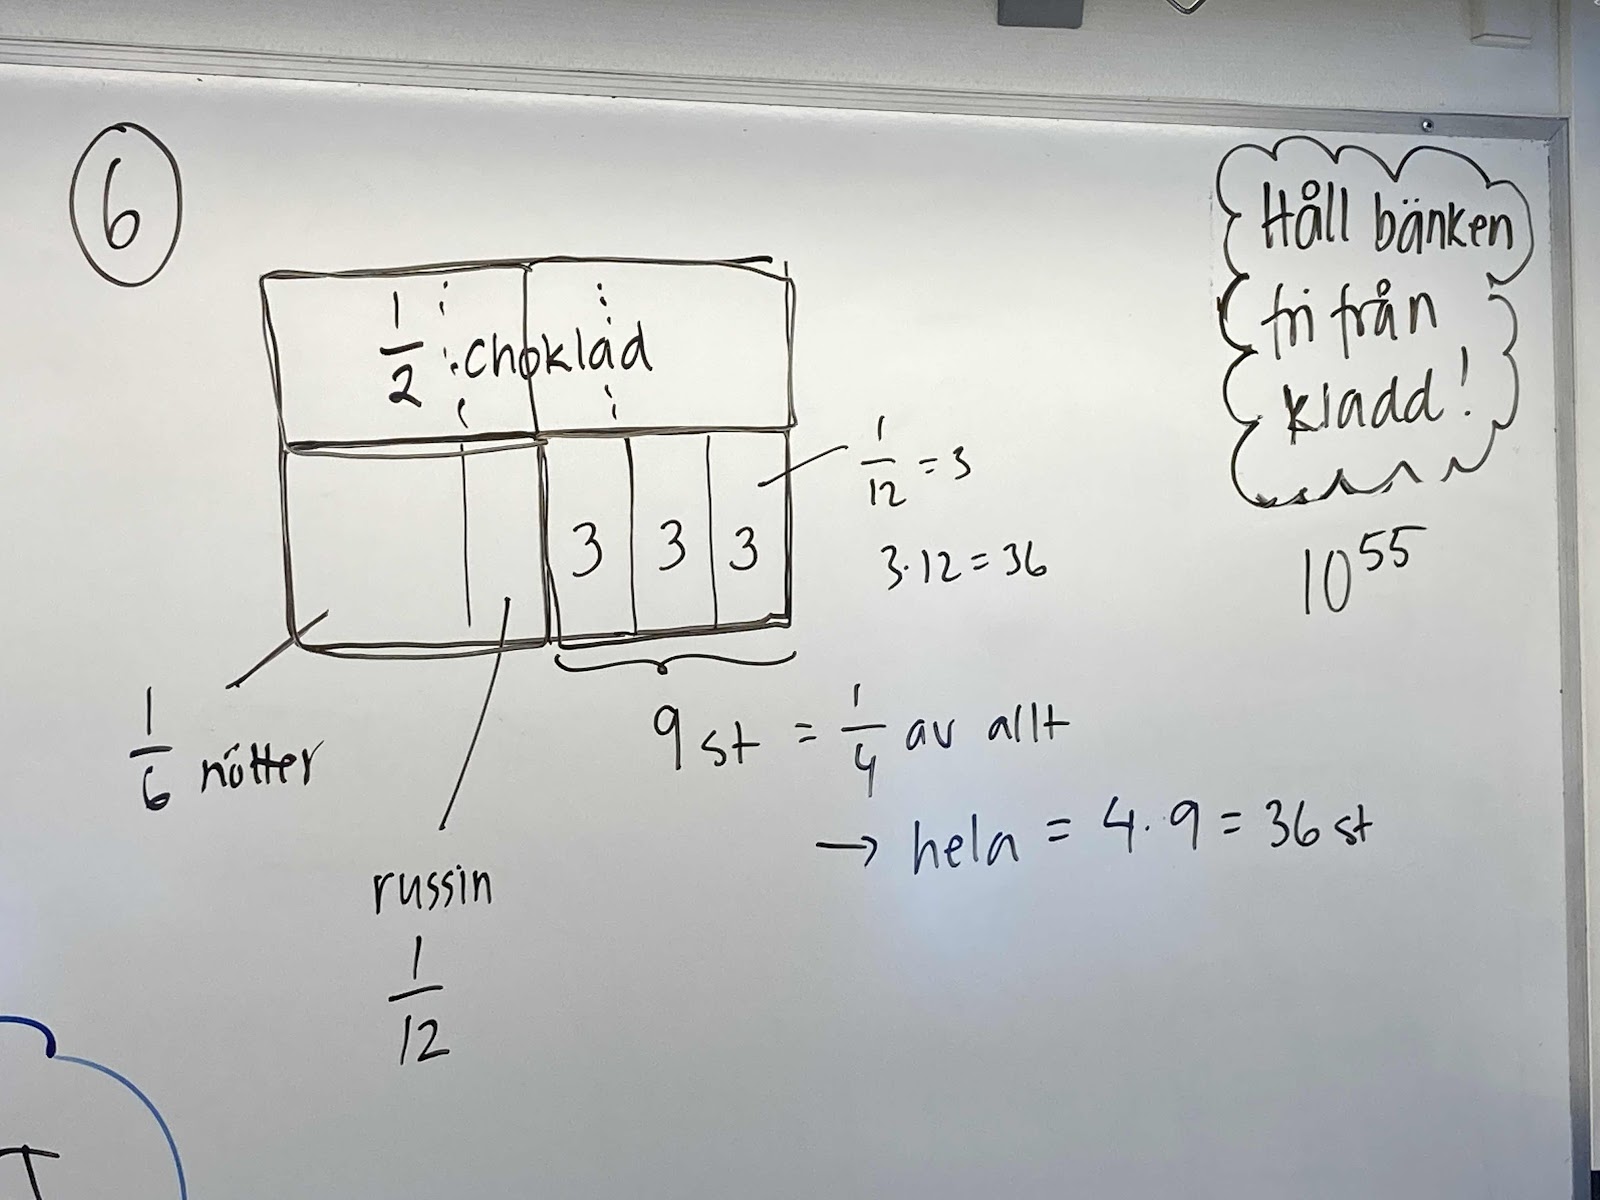 6
1/2 choklad
3 3 3
1/12 = 3
3·12 = 36
1/6 nötter
russin
1/12
9 st = 1/4 av allt
→ hela = 4·9 = 36 st
Håll bänken
fri från
kladd!
10⁵⁵